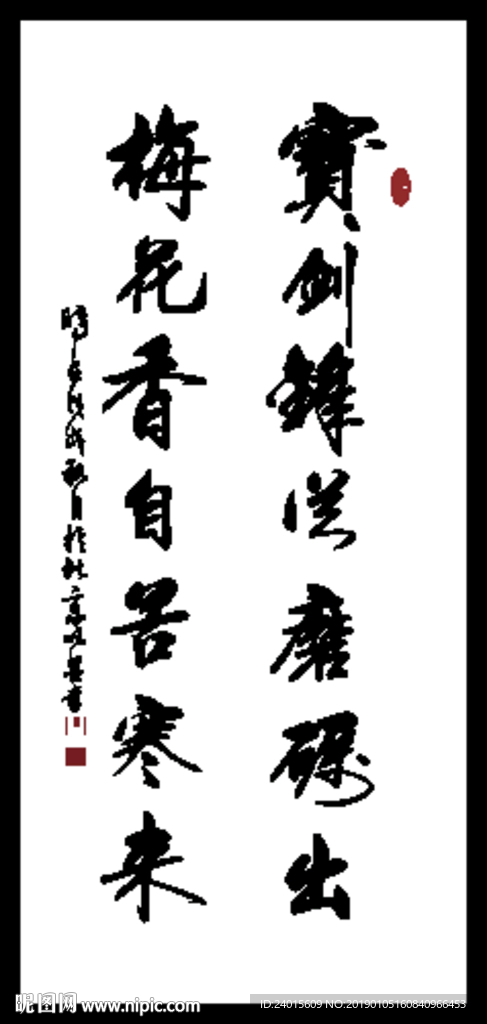 寶劍鋒從磨礪出
梅花香自苦寒来
昵图网 www.nipic.com
ID:24015609 NO:20190105160840966453